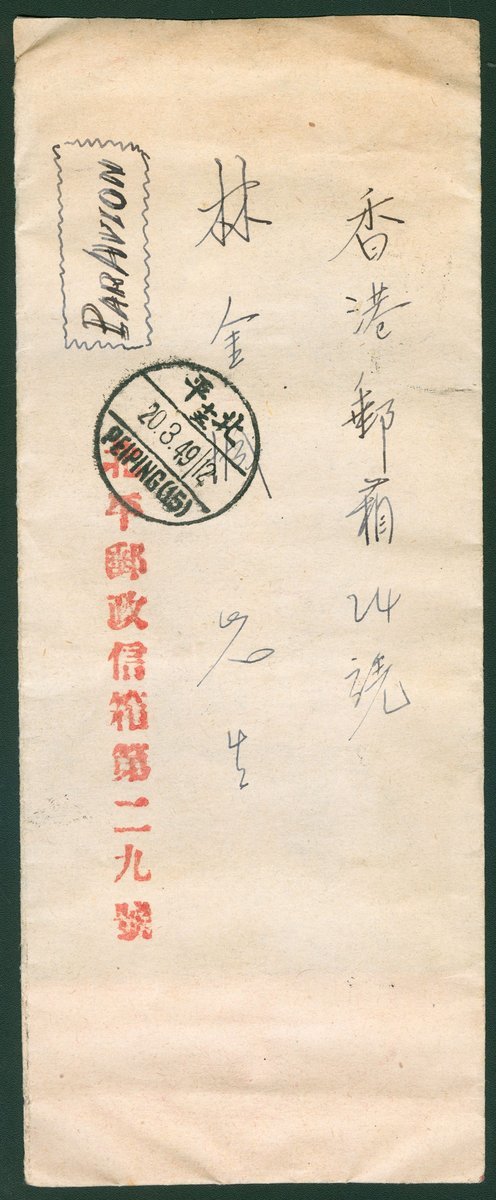 香港郵箱24號
林金 先生
PAR AVION
北平
20.3.49/12
PEIPING(15)
北平郵政信箱第二九號